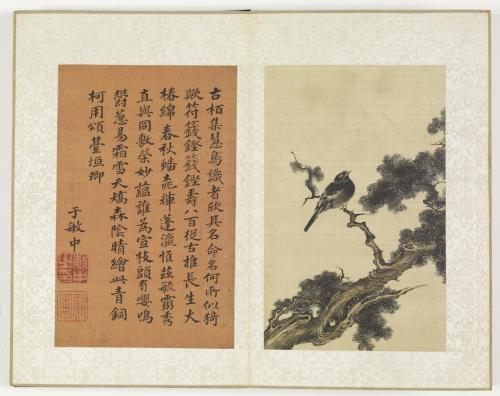 古栢集慧鳥識者欣具名命名何所似猗
歟符籛鏗籛鏗壽八百從古推長生大
椿綿春秋蟠桃輝蓬瀛惟茲毓靈秀
直與同敷榮妙蘊誰為宣枝頭有嚶鳴
欝蔥易霜雪夭矯森陰晴繪此青銅
柯用頌臺垣卿
于敏中